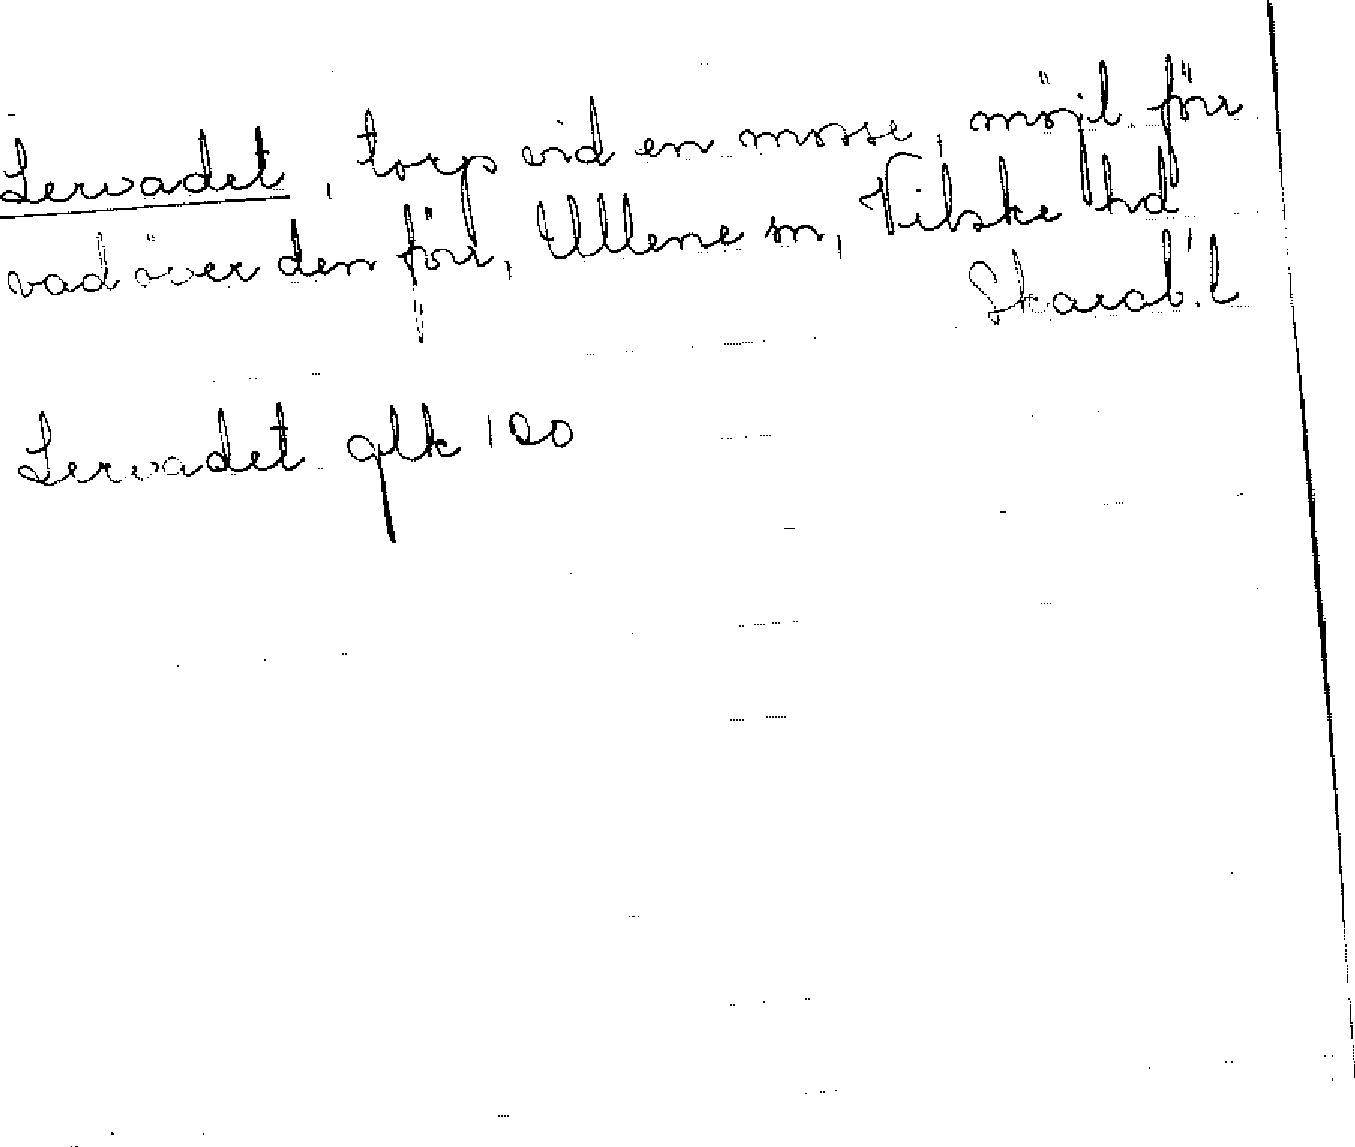 Lervadet, torp vid en mosse, möjl. förr
vad över den förr, Ullene sn, Vilske hd
Skarab.l
Lervadet glk 120